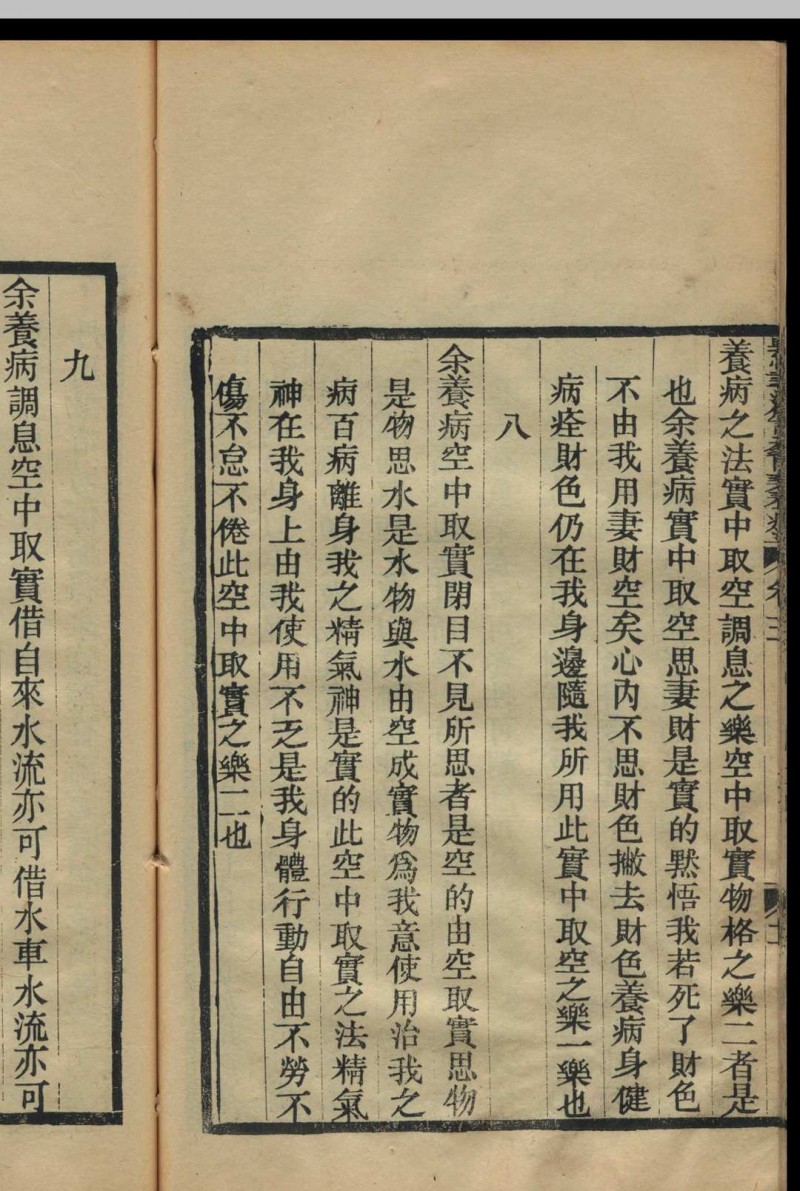 養病之法實中取空調息之樂空中取實物格之樂二者是
也余養病實中取空思妻財是實的黙悟我若死了財色
不由我用妻財空矣心內不思財色撇去財色養病身健
病痊財色仍在我身邊隨我所用此實中取空之樂一樂也
八
余養病空中取實閉目不見所思者是空的由空取實思物
是物思水是水物與水由空成實物爲我意使用治我之
病百病離身我之精氣神是實的此空中取實之法精氣
神在我身上由我使用不乏是我身體行動自由不勞不
傷不怠不倦此空中取實之樂二也
九
余養病調息空中取實借自來水流亦可借水車水流亦可